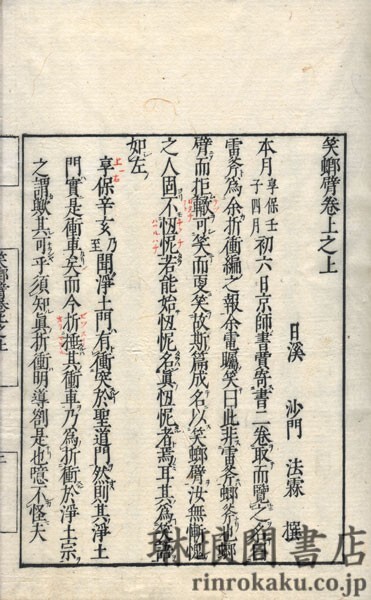 笑螂臂卷上之上
日溪 沙門 法霖 撰
本月享保壬子四月初六日京師書賈寄書二卷取而覽之
雷斧為余折衝編之報余電矚笑曰此非雷斧螂斧也螂
臂而拒轍可笑而更笑故斯篇成名以笑螂臂汝無慚愧
之人固不忸怩若能始忸怩名真忸怩者焉耳其為笑端
如左
享保辛亥乃至開淨土門有衝突於聖道門然則其淨土
門實是衝車矣而今折挫其衝車乃為折衝於淨土宗
之謂歟其可乎須知眞折衝明導劄是也噫不怪夫
琳琅閣書店
rinrokaku.co.jp